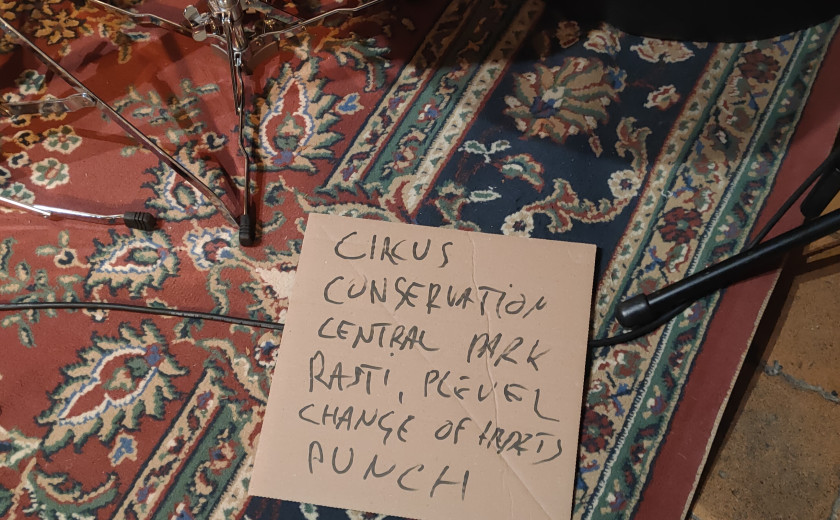 CIRCUS
CONSERVATION
CENTRAL PARK
RASTI, PLEVEL
CHANGE OF HABITS
PUNCH